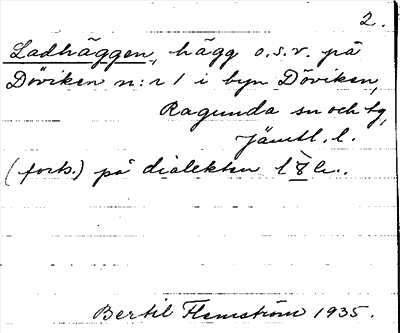 2.
Ladhäggen, hägg o.s.v. på
Döviken n:r 1 i byn Döviken,
Ragunda sn och tg,
Jämtl. l.
(forts.) på dialekten
Bertil Flemström 1935.